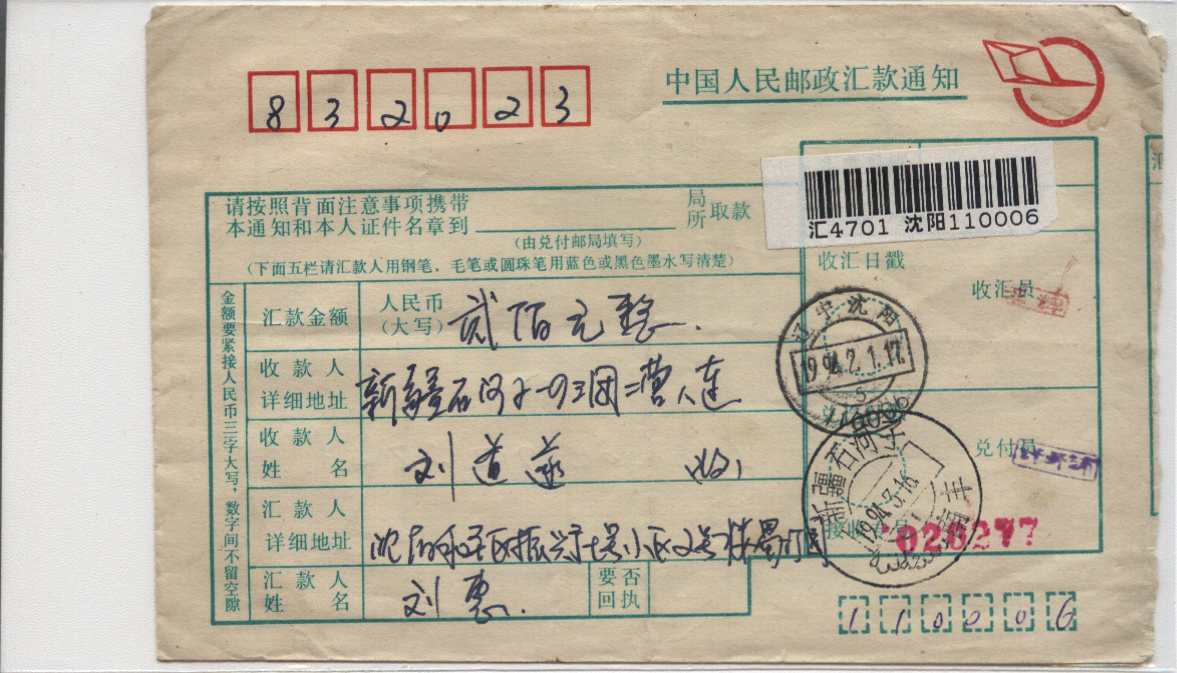 中国人民邮政汇款通知
832023
汇4701 沈阳110006
请按照背面注意事项携带
本通知和本人证件名章到
局
所
取款
(由兑付邮局填写)
(下面五栏请汇款人用钢笔、毛笔或圆珠笔用蓝色或黑色墨水写清楚)
收汇日戳
收汇员
金额要紧接人民币三字大写，数字间不留空隙
汇款金额
人民币
(大写)
贰佰元整.
辽宁沈阳
1994.2.1.17.
收款人
详细地址
新疆石河子一四三团二营八连
收款人
姓名
刘道
收
兑付局
新疆石河子
1994.3.16
汇款人
详细地址
沈阳和平区振兴
小区2号楼
接收人员
026277
汇款人
姓名
刘惠.
要否
回执
110006